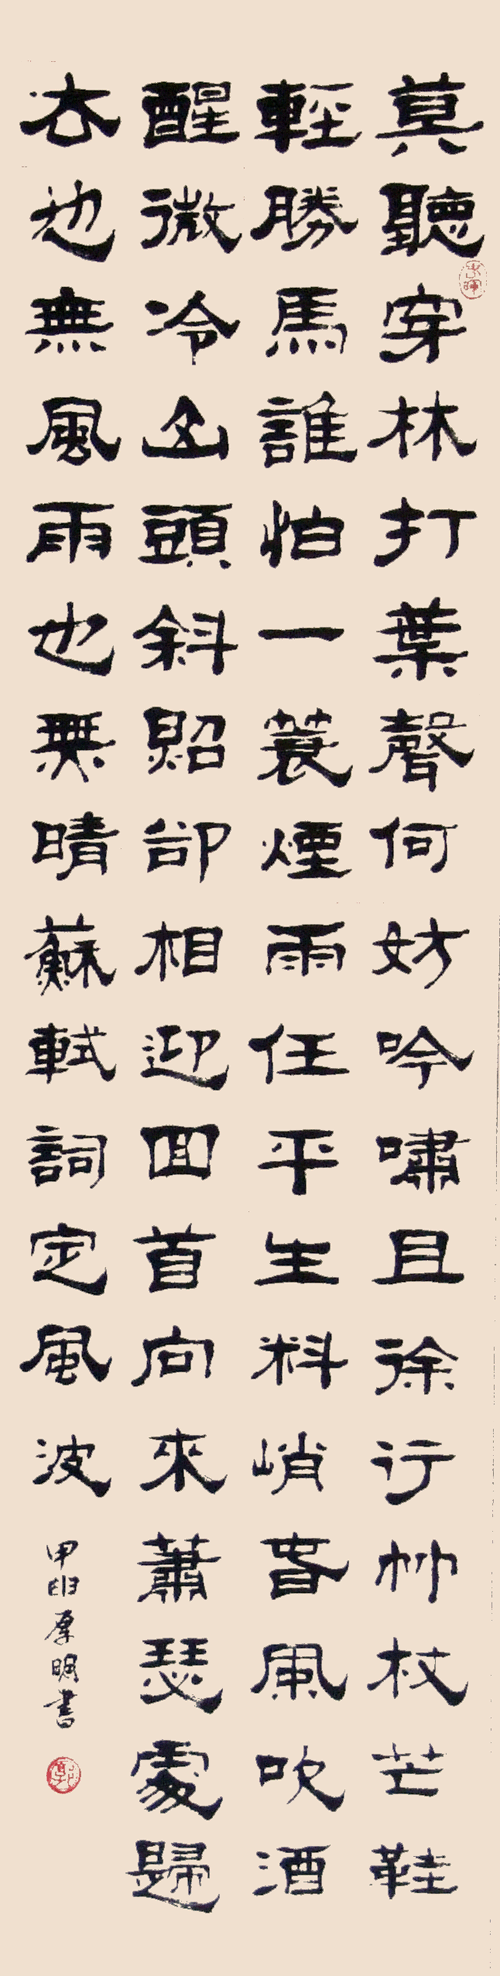 莫聽穿林打葉聲何妨吟嘯且徐行竹杖芒鞋
輕勝馬誰怕一蓑煙雨任平生料峭春風吹酒
醒微冷山頭斜照卻相迎回首向來蕭瑟處歸
去也無風雨也無晴蘇軾詞定風波
甲申厚明書